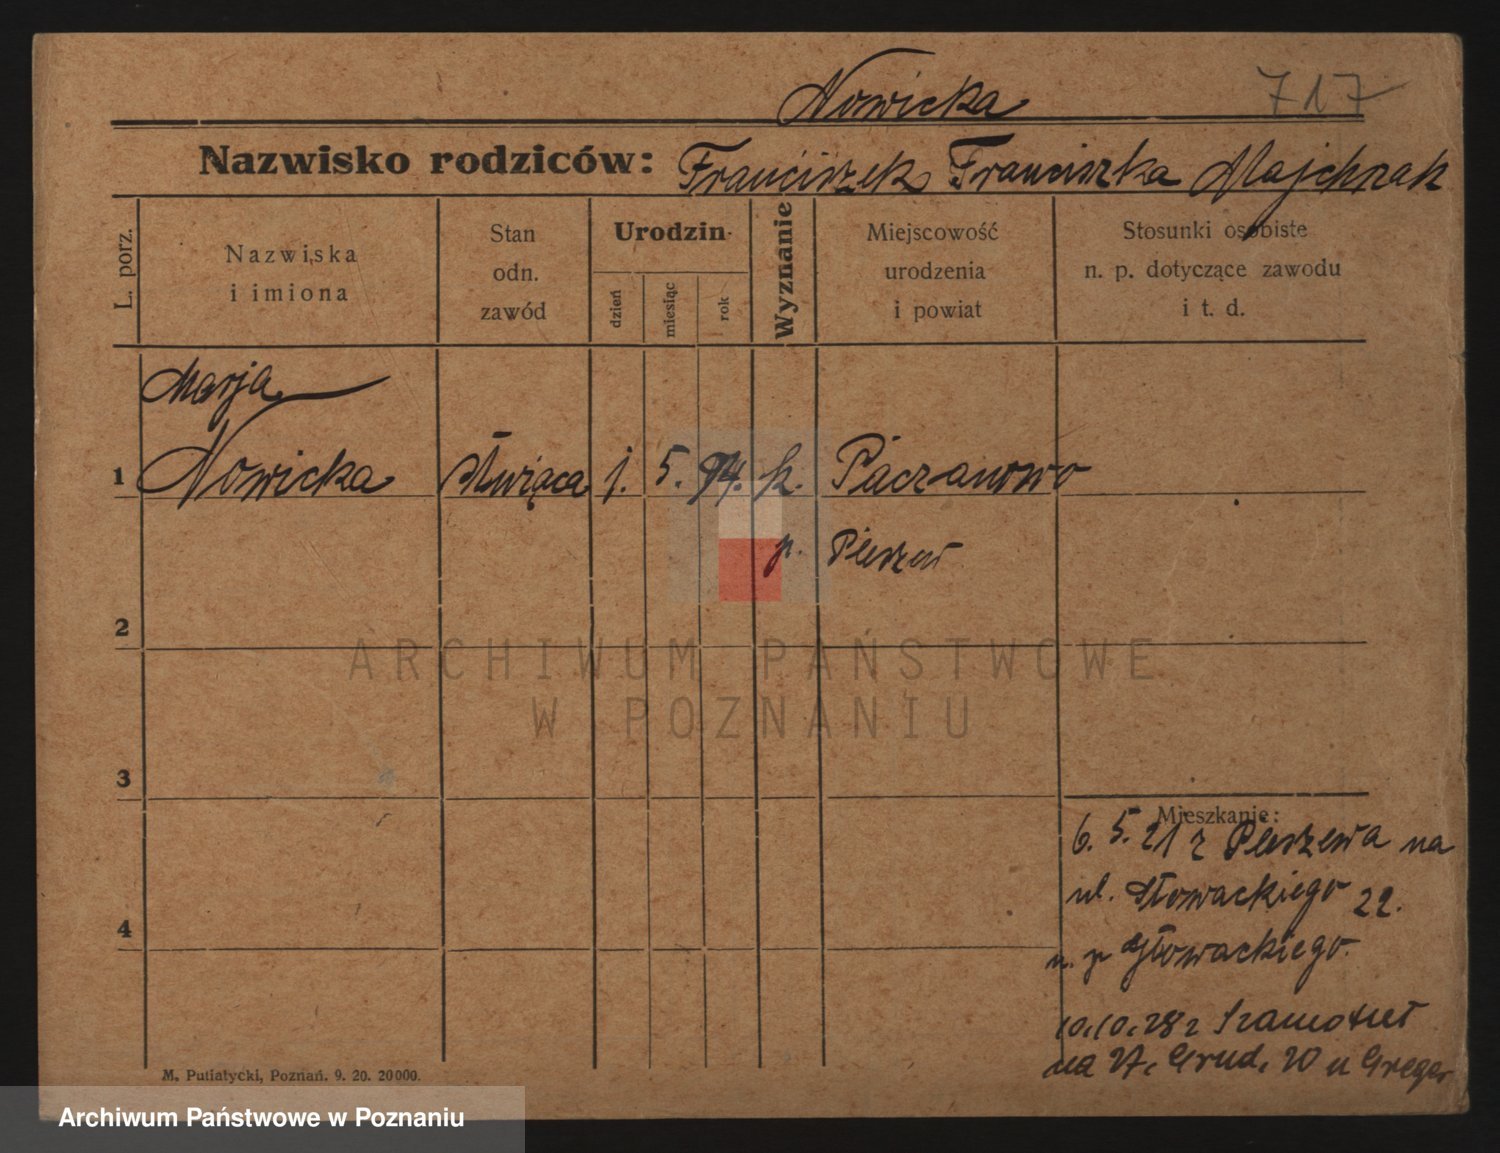 Nowicka 717
Nazwisko rodziców: Franciszek Franciszka Majchrzak
L. porz.
Nazwiska
i imiona
Stan
odn.
zawód
Urodzin
dzień
miesiąc
rok
Wyznanie
Miejscowość
urodzenia
i powiat
Stosunki osobiste
n. p. dotyczące zawodu
i t. d.
Marja
1 Nowicka służąca 1. 5. 94. k. Paczanowo
p. Pleszew
2
ARCHIWUM PAŃSTWOWE
W POZNANIU
3
Mieszkanie:
6. 5. 21 z Pleszewa na
ul. Słowackiego 22.
u. p Głowackiego.
4
10.10.28 z Szamotuł
na 27. Grud. 20 u Greger
M. Putiatycki, Poznań. 9. 20. 20000.
Archiwum Państwowe w Poznaniu